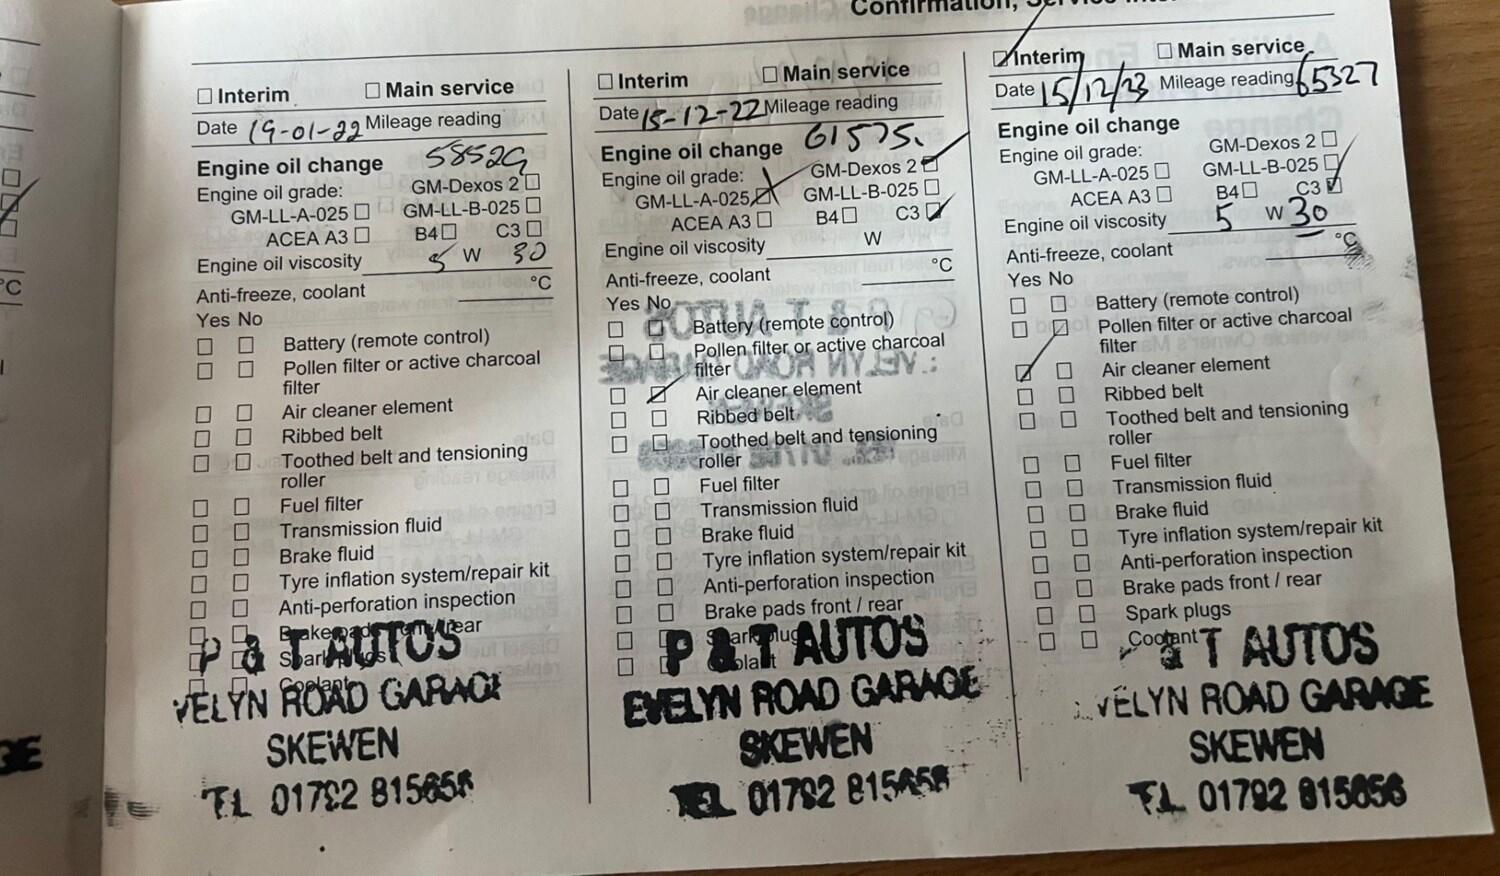 Confirmation, Service
Interim Main service
Date 19-01-22 Mileage reading
Engine oil change 58529
Engine oil grade: GM-Dexos 2
GM-LL-A-025 GM-LL-B-025
ACEA A3 B4 C3
Engine oil viscosity 5 W 30
Anti-freeze, coolant °C
Yes No
Battery (remote control)
Pollen filter or active charcoal
filter
Air cleaner element
Ribbed belt
Toothed belt and tensioning
roller
Fuel filter
Transmission fluid
Brake fluid
Tyre inflation system/repair kit
Anti-perforation inspection
Brake pads front / rear
Spark plugs
Coolant
P & T AUTOS
VELYN ROAD GARAGE
SKEWEN
TL 01792 815656
Interim Main service
Date 15-12-22 Mileage reading
Engine oil change 61575.
Engine oil grade: GM-Dexos 2
GM-LL-A-025 GM-LL-B-025
ACEA A3 B4 C3
Engine oil viscosity W
Anti-freeze, coolant °C
Yes No
Battery (remote control)
Pollen filter or active charcoal
filter
Air cleaner element
Ribbed belt
Toothed belt and tensioning
roller
Fuel filter
Transmission fluid
Brake fluid
Tyre inflation system/repair kit
Anti-perforation inspection
Brake pads front / rear
Spark plugs
Coolant
P & T AUTOS
EVELYN ROAD GARAGE
SKEWEN
TEL 01792 815656
Interim Main service
Date 15/12/23 Mileage reading 65327
Engine oil change
Engine oil grade: GM-Dexos 2
GM-LL-A-025 GM-LL-B-025
ACEA A3 B4 C3
Engine oil viscosity 5 W 30
Anti-freeze, coolant °C
Yes No
Battery (remote control)
Pollen filter or active charcoal
filter
Air cleaner element
Ribbed belt
Toothed belt and tensioning
roller
Fuel filter
Transmission fluid
Brake fluid
Tyre inflation system/repair kit
Anti-perforation inspection
Brake pads front / rear
Spark plugs
Coolant
& T AUTOS
VELYN ROAD GARAGE
SKEWEN
TL 01792 815656